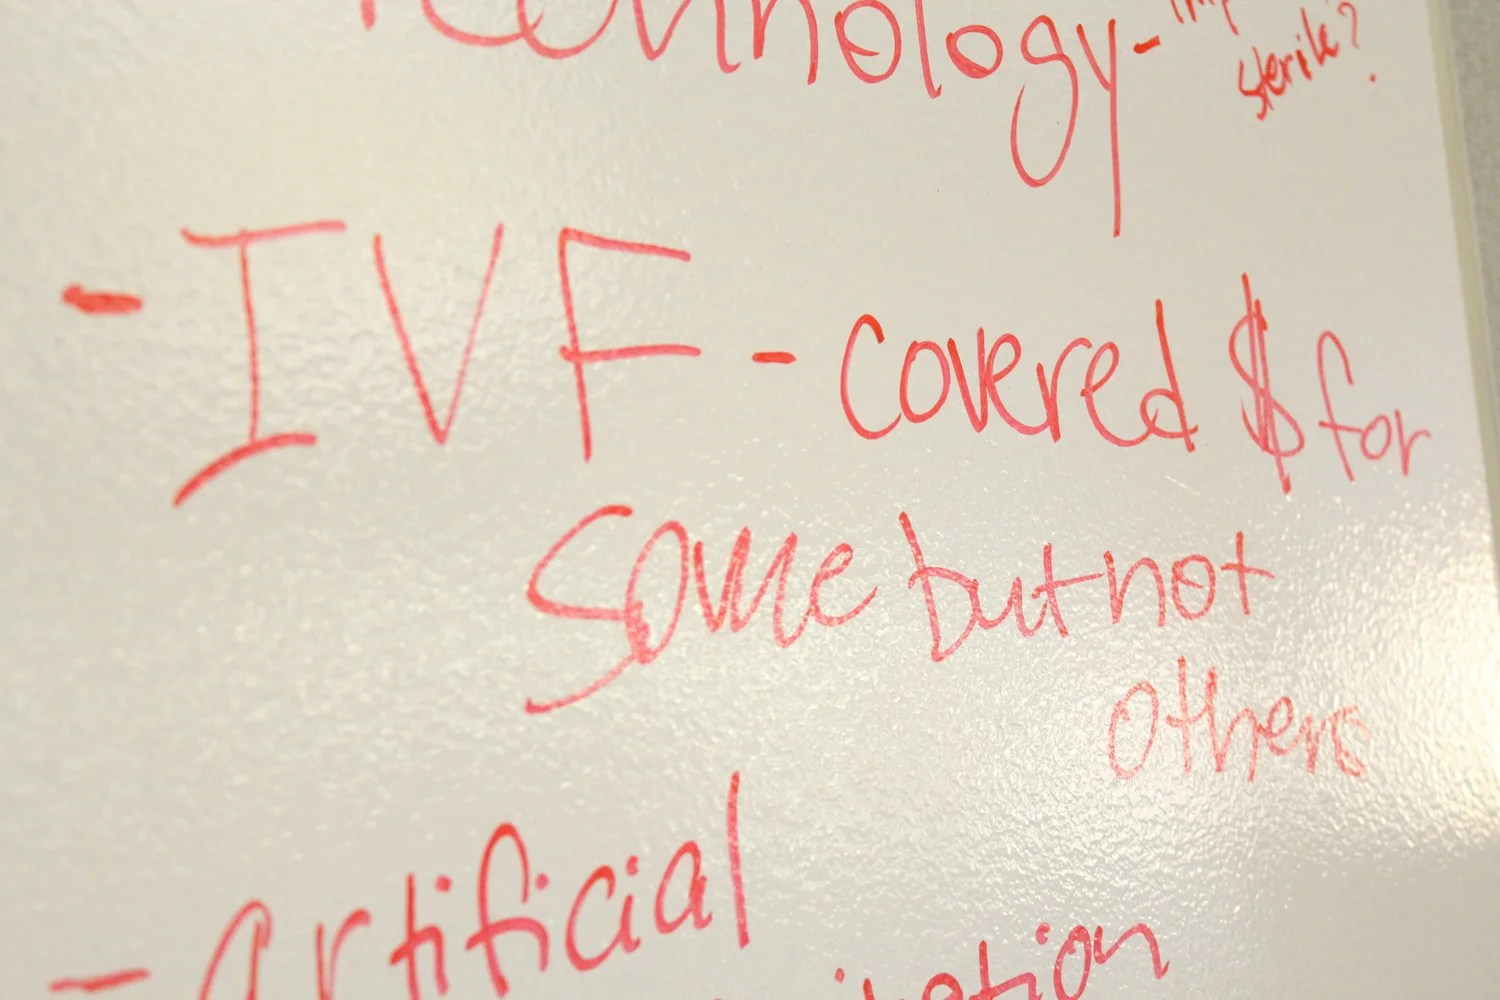 Technology - sterile?
- IVF - covered $ for
some but not
others
- Artificial